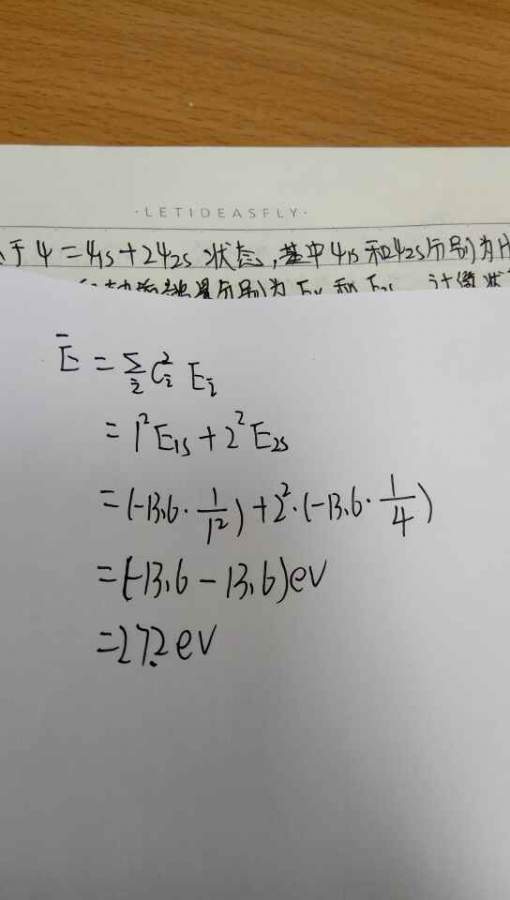 ·LETIDEASFLY·
于ψ=ψ1s+2ψ2s状态,其中ψ1s和ψ2s分别为H
分别为 和
Ē = Σi Ci² Ei
= 1²E1s + 2²E2s
= (-13.6·1/1²) + 2²·(-13.6·1/4)
= (-13.6 - 13.6)ev
= 27.2 ev